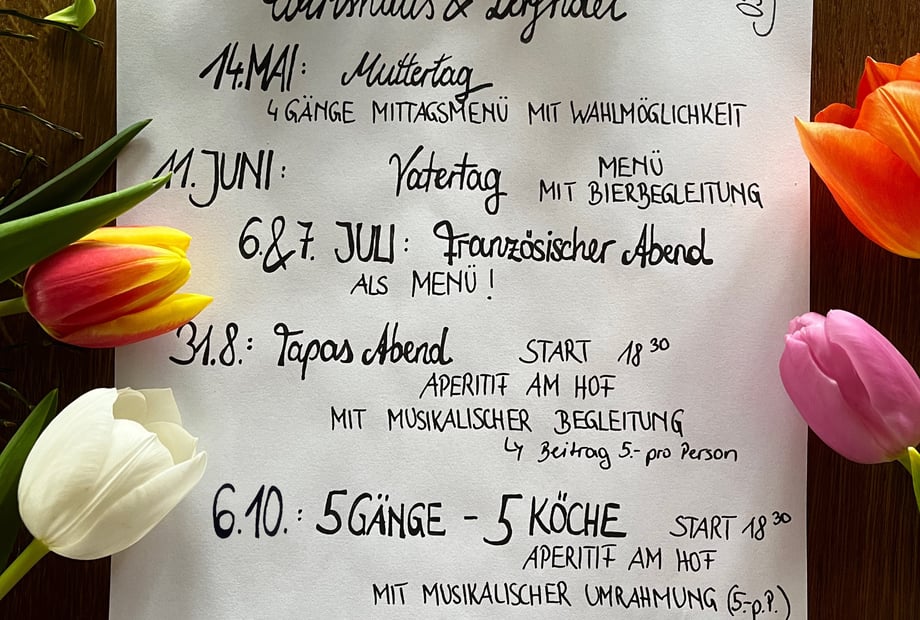 Wirtshaus &
14. MAI: Muttertag
4 GÄNGE MITTAGSMENÜ MIT WAHLMÖGLICHKEIT
11. JUNI: Vatertag MENÜ
MIT BIERBEGLEITUNG
6.&7. JULI: Französischer Abend
ALS MENÜ!
31.8.: Tapas Abend START 18 30
APERITIF AM HOF
MIT MUSIKALISCHER BEGLEITUNG
↳ Beitrag 5.- pro Person
6.10.: 5 GÄNGE - 5 KÖCHE START 18 30
APERITIF AM HOF
MIT MUSIKALISCHER UMRAHMUNG (5.-p.P.)